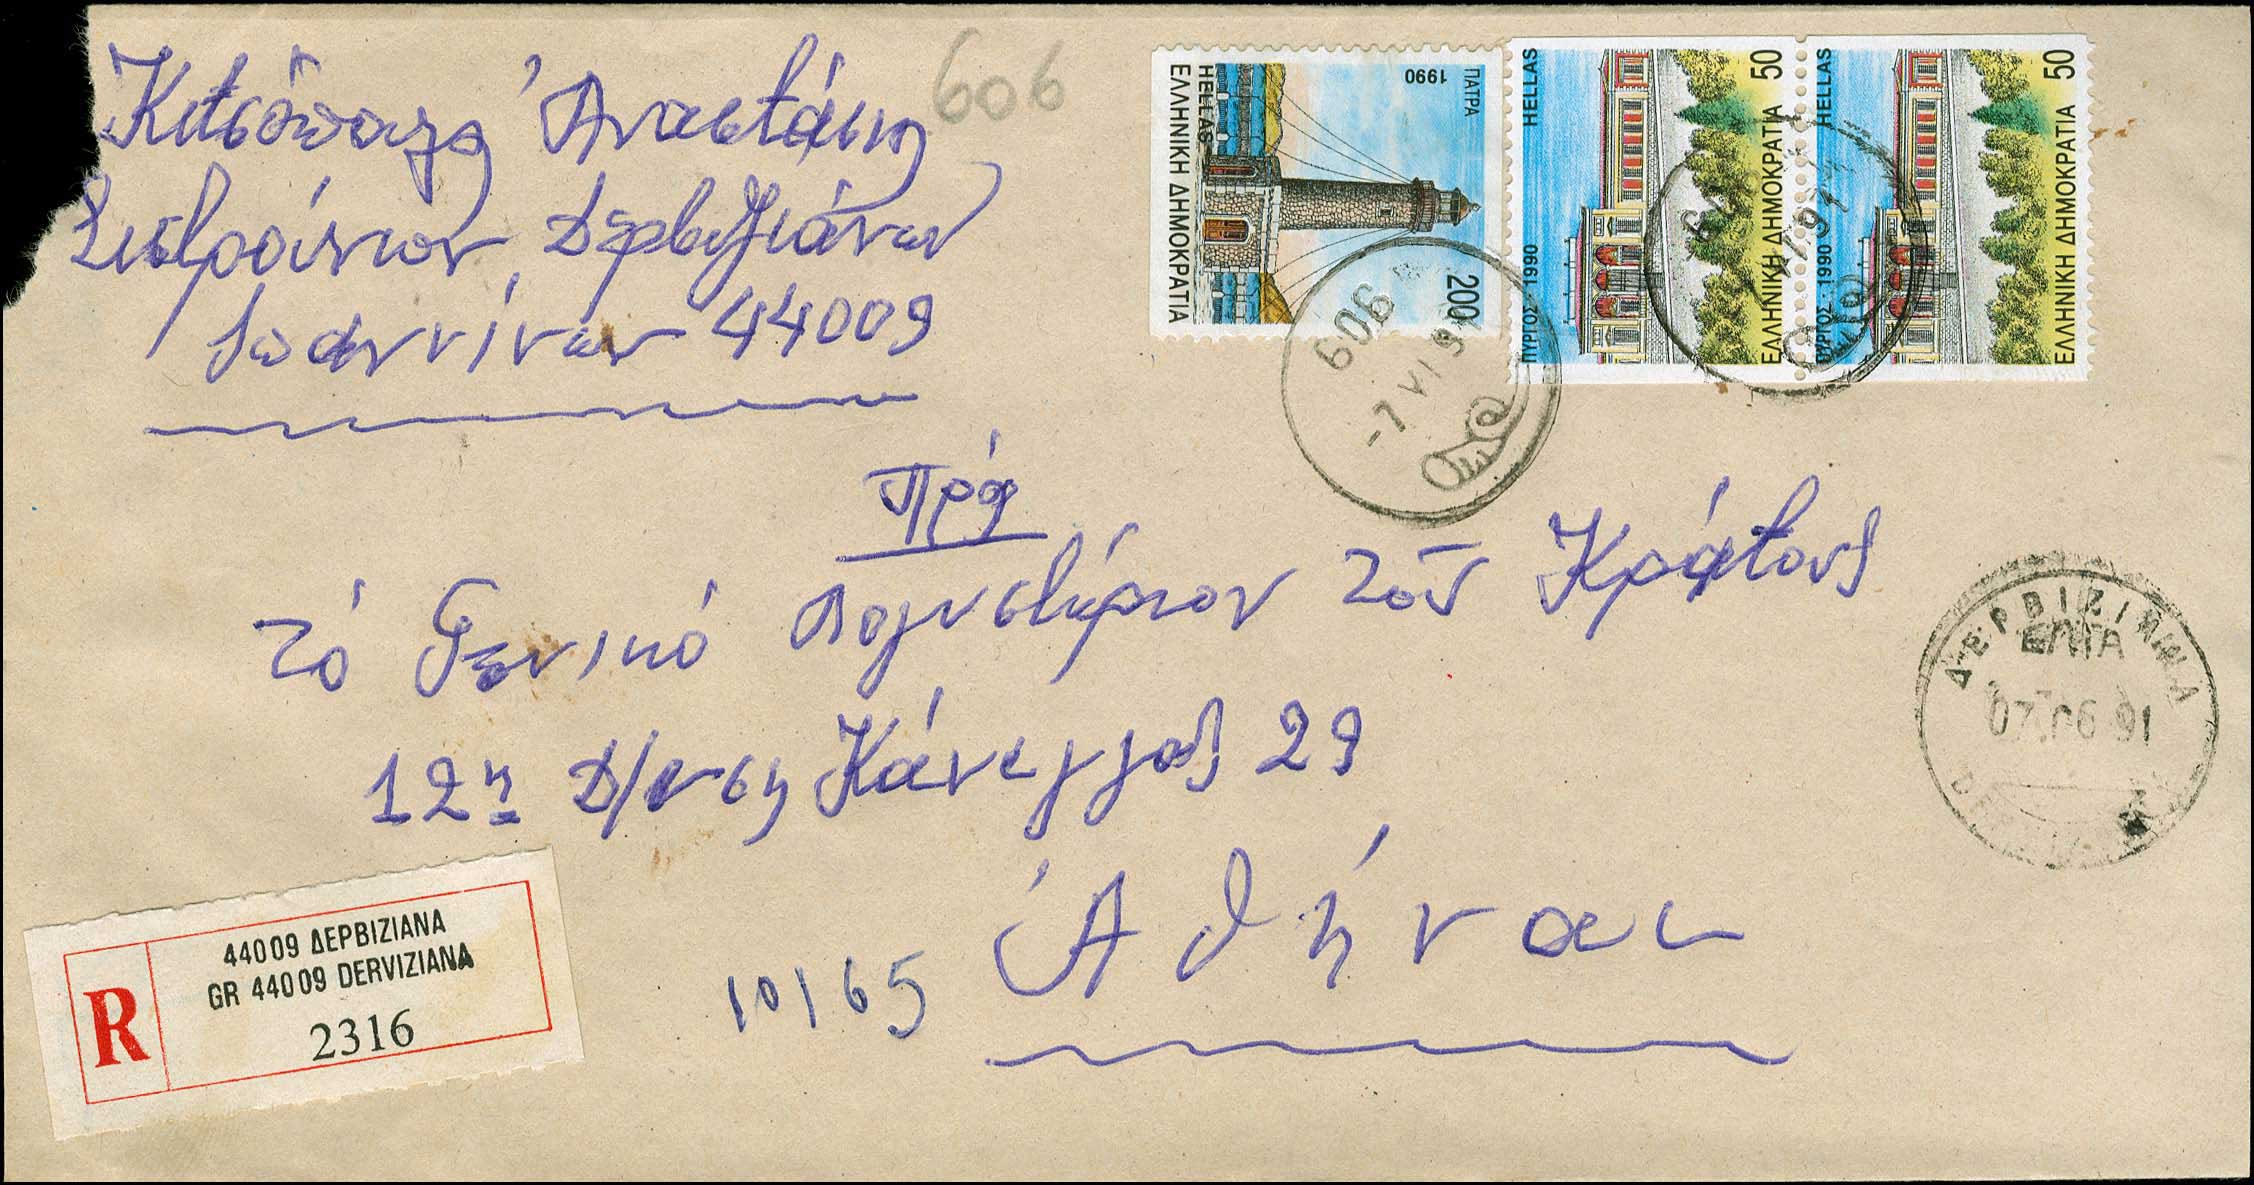 606
Ἀναστάσιος
Σιστρούνιον Δερβιζιάνων
Ἰωαννίνων 44009
ΠΑΤΡΑ
1990
HELLAS
ΕΛΛΗΝΙΚΗ ΔΗΜΟΚΡΑΤΙΑ
200
HELLAS
50
ΠΥΡΓΟΣ · 1990
ΕΛΛΗΝΙΚΗ ΔΗΜΟΚΡΑΤΙΑ
HELLAS
50
ΠΥΡΓΟΣ · 1990
ΕΛΛΗΝΙΚΗ ΔΗΜΟΚΡΑΤΙΑ
606
-7 VI 9
Πρός
τό Γενικό Λογιστήριον τοῦ Κράτους
12η Δ/νση Κάνιγγος 29
10165 Ἀθήναι
ΔΕΡΒΙΖΙΑΝΑ
ΕΛΤΑ
07.06 91
R
44009 ΔΕΡΒΙΖΙΑΝΑ
GR 44009 DERVIZIANA
2316